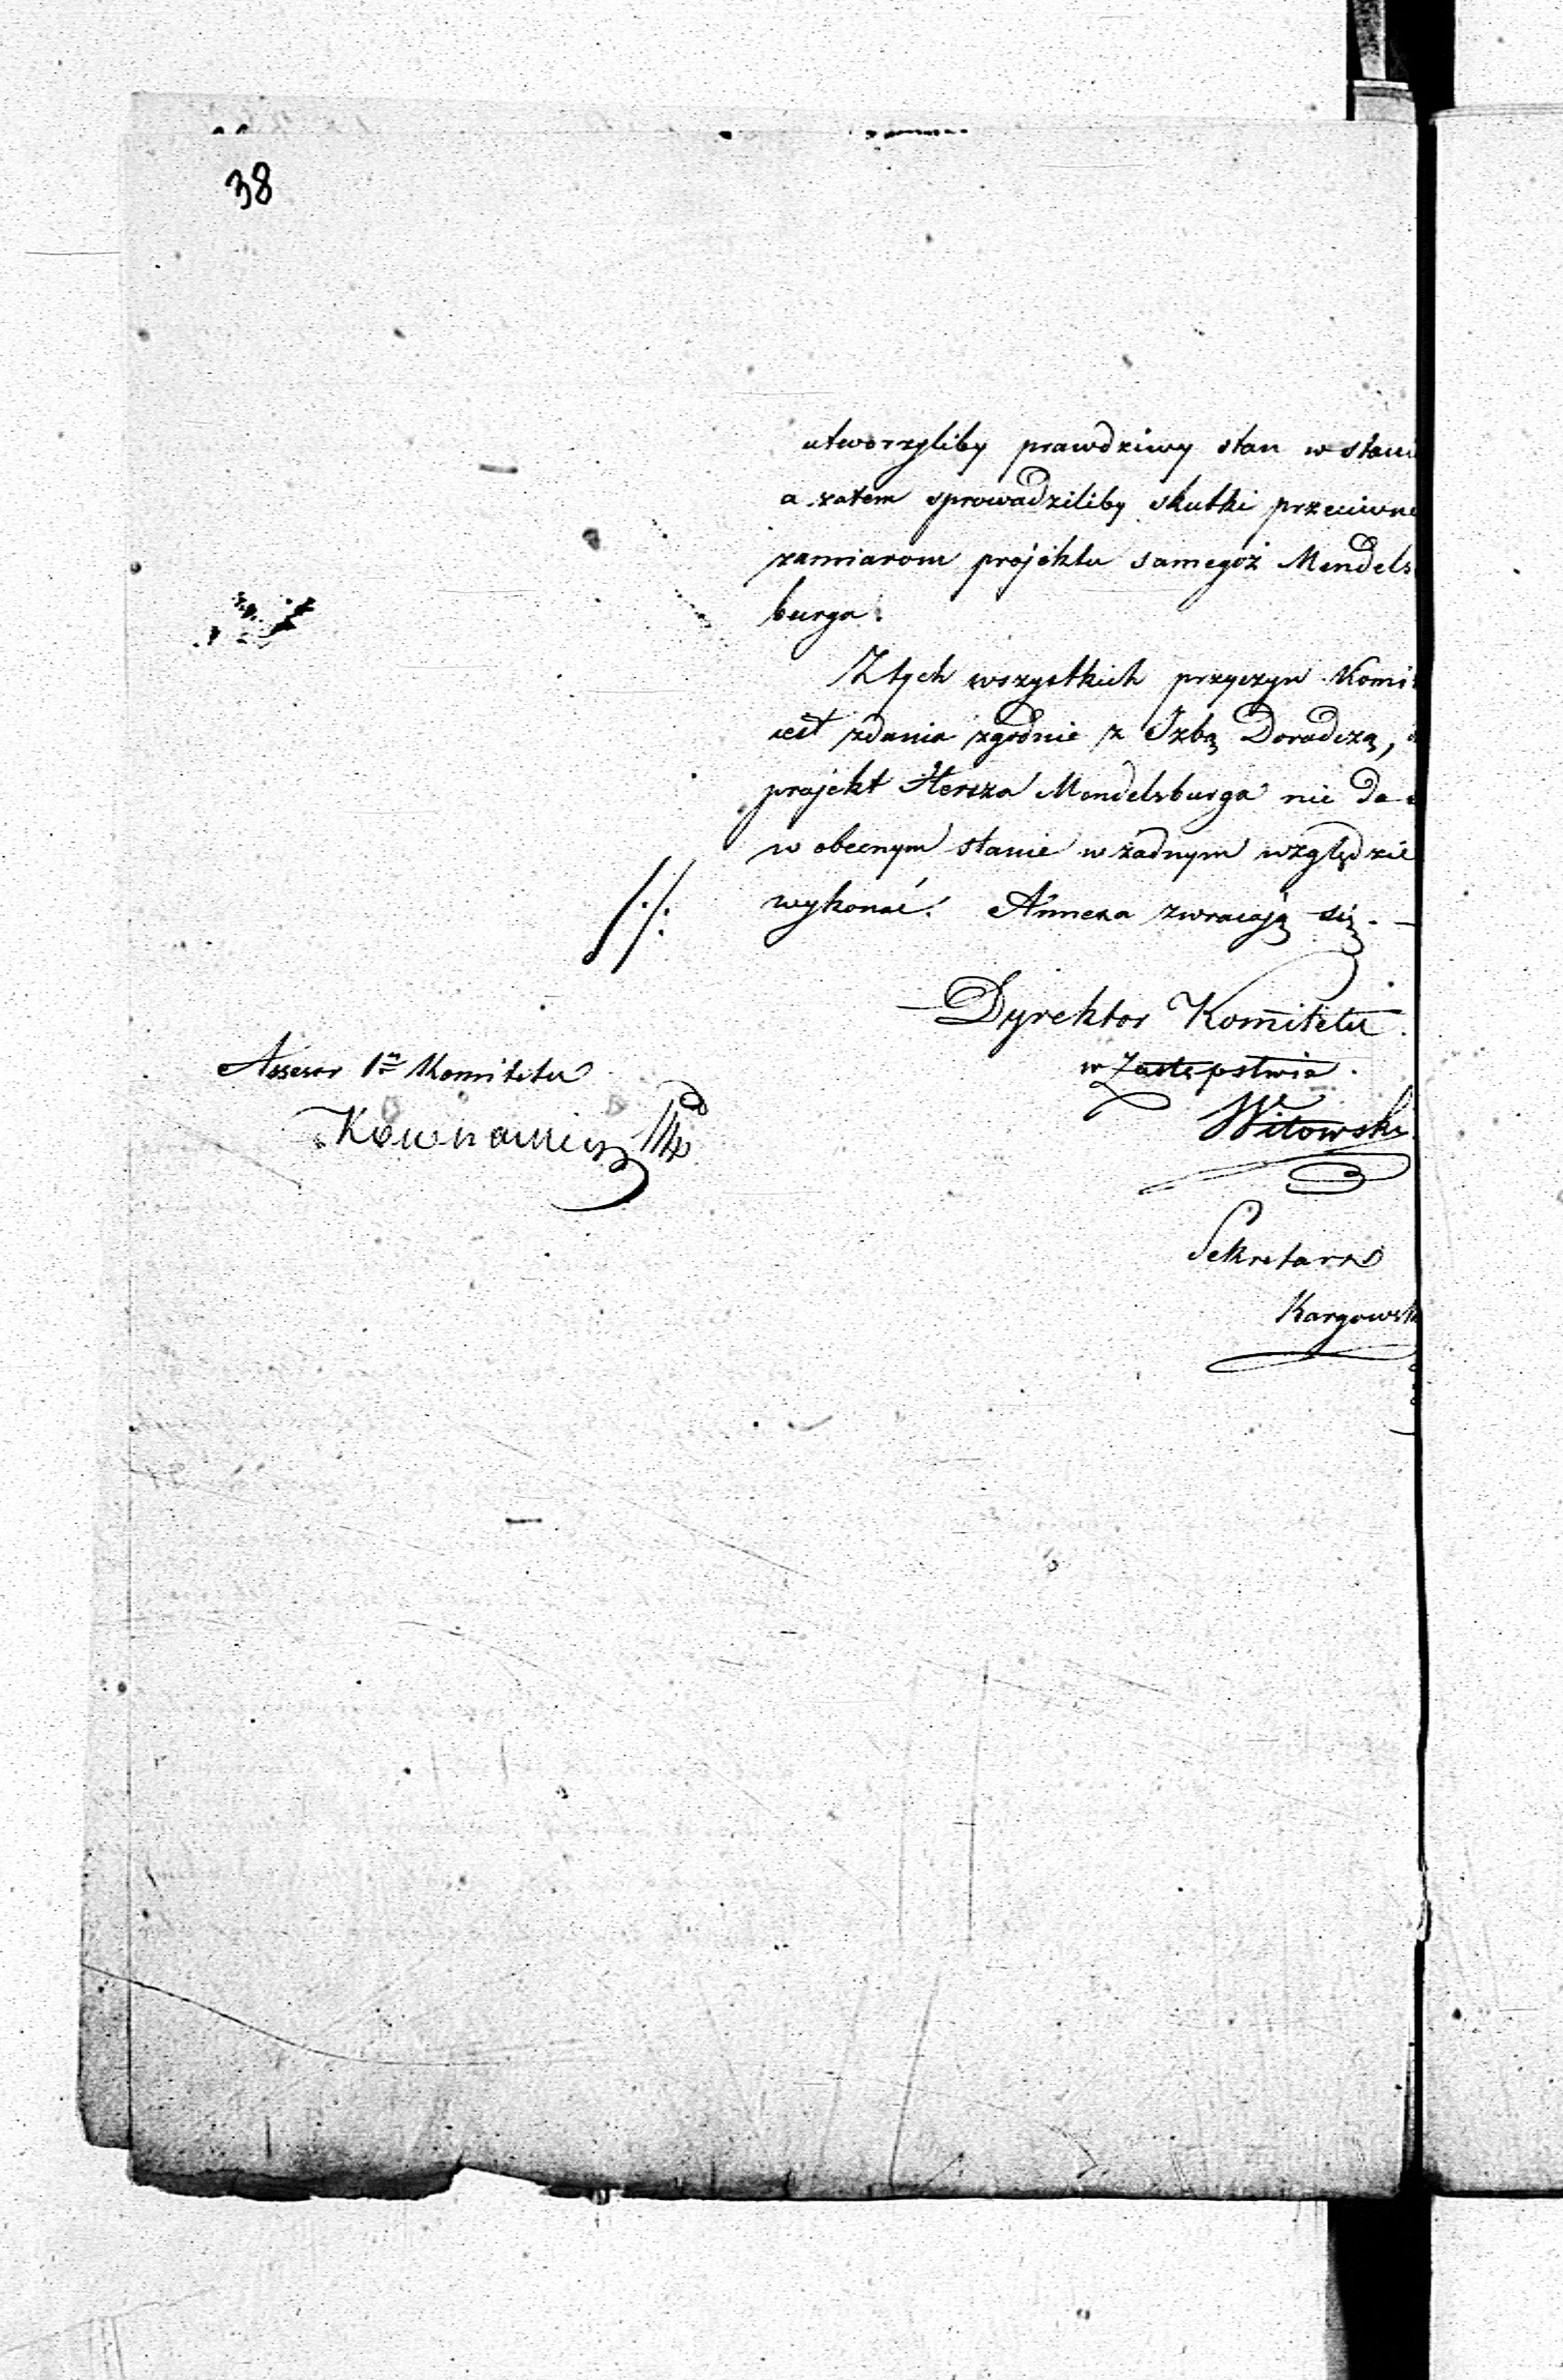 38
utworzyliby prawdziwy stan w stani
a zatem sprowadziliby skutki przeciwne
zamiarom projektu samegoż Mendels
burga.
Z tych wszystkich przyczyn Komi
jest zdania zgodnie z Izbą Doradczą,
projekt Hersza Mendelsburga nie da
w obecnym stanie w żadnym względzie
wykonać. Annexa zwracają się. —
Dyrektor Komitetu
w Zastępstwie
Witowski
Assesor 1n Komitetu
Sekretarz
Kargowsk